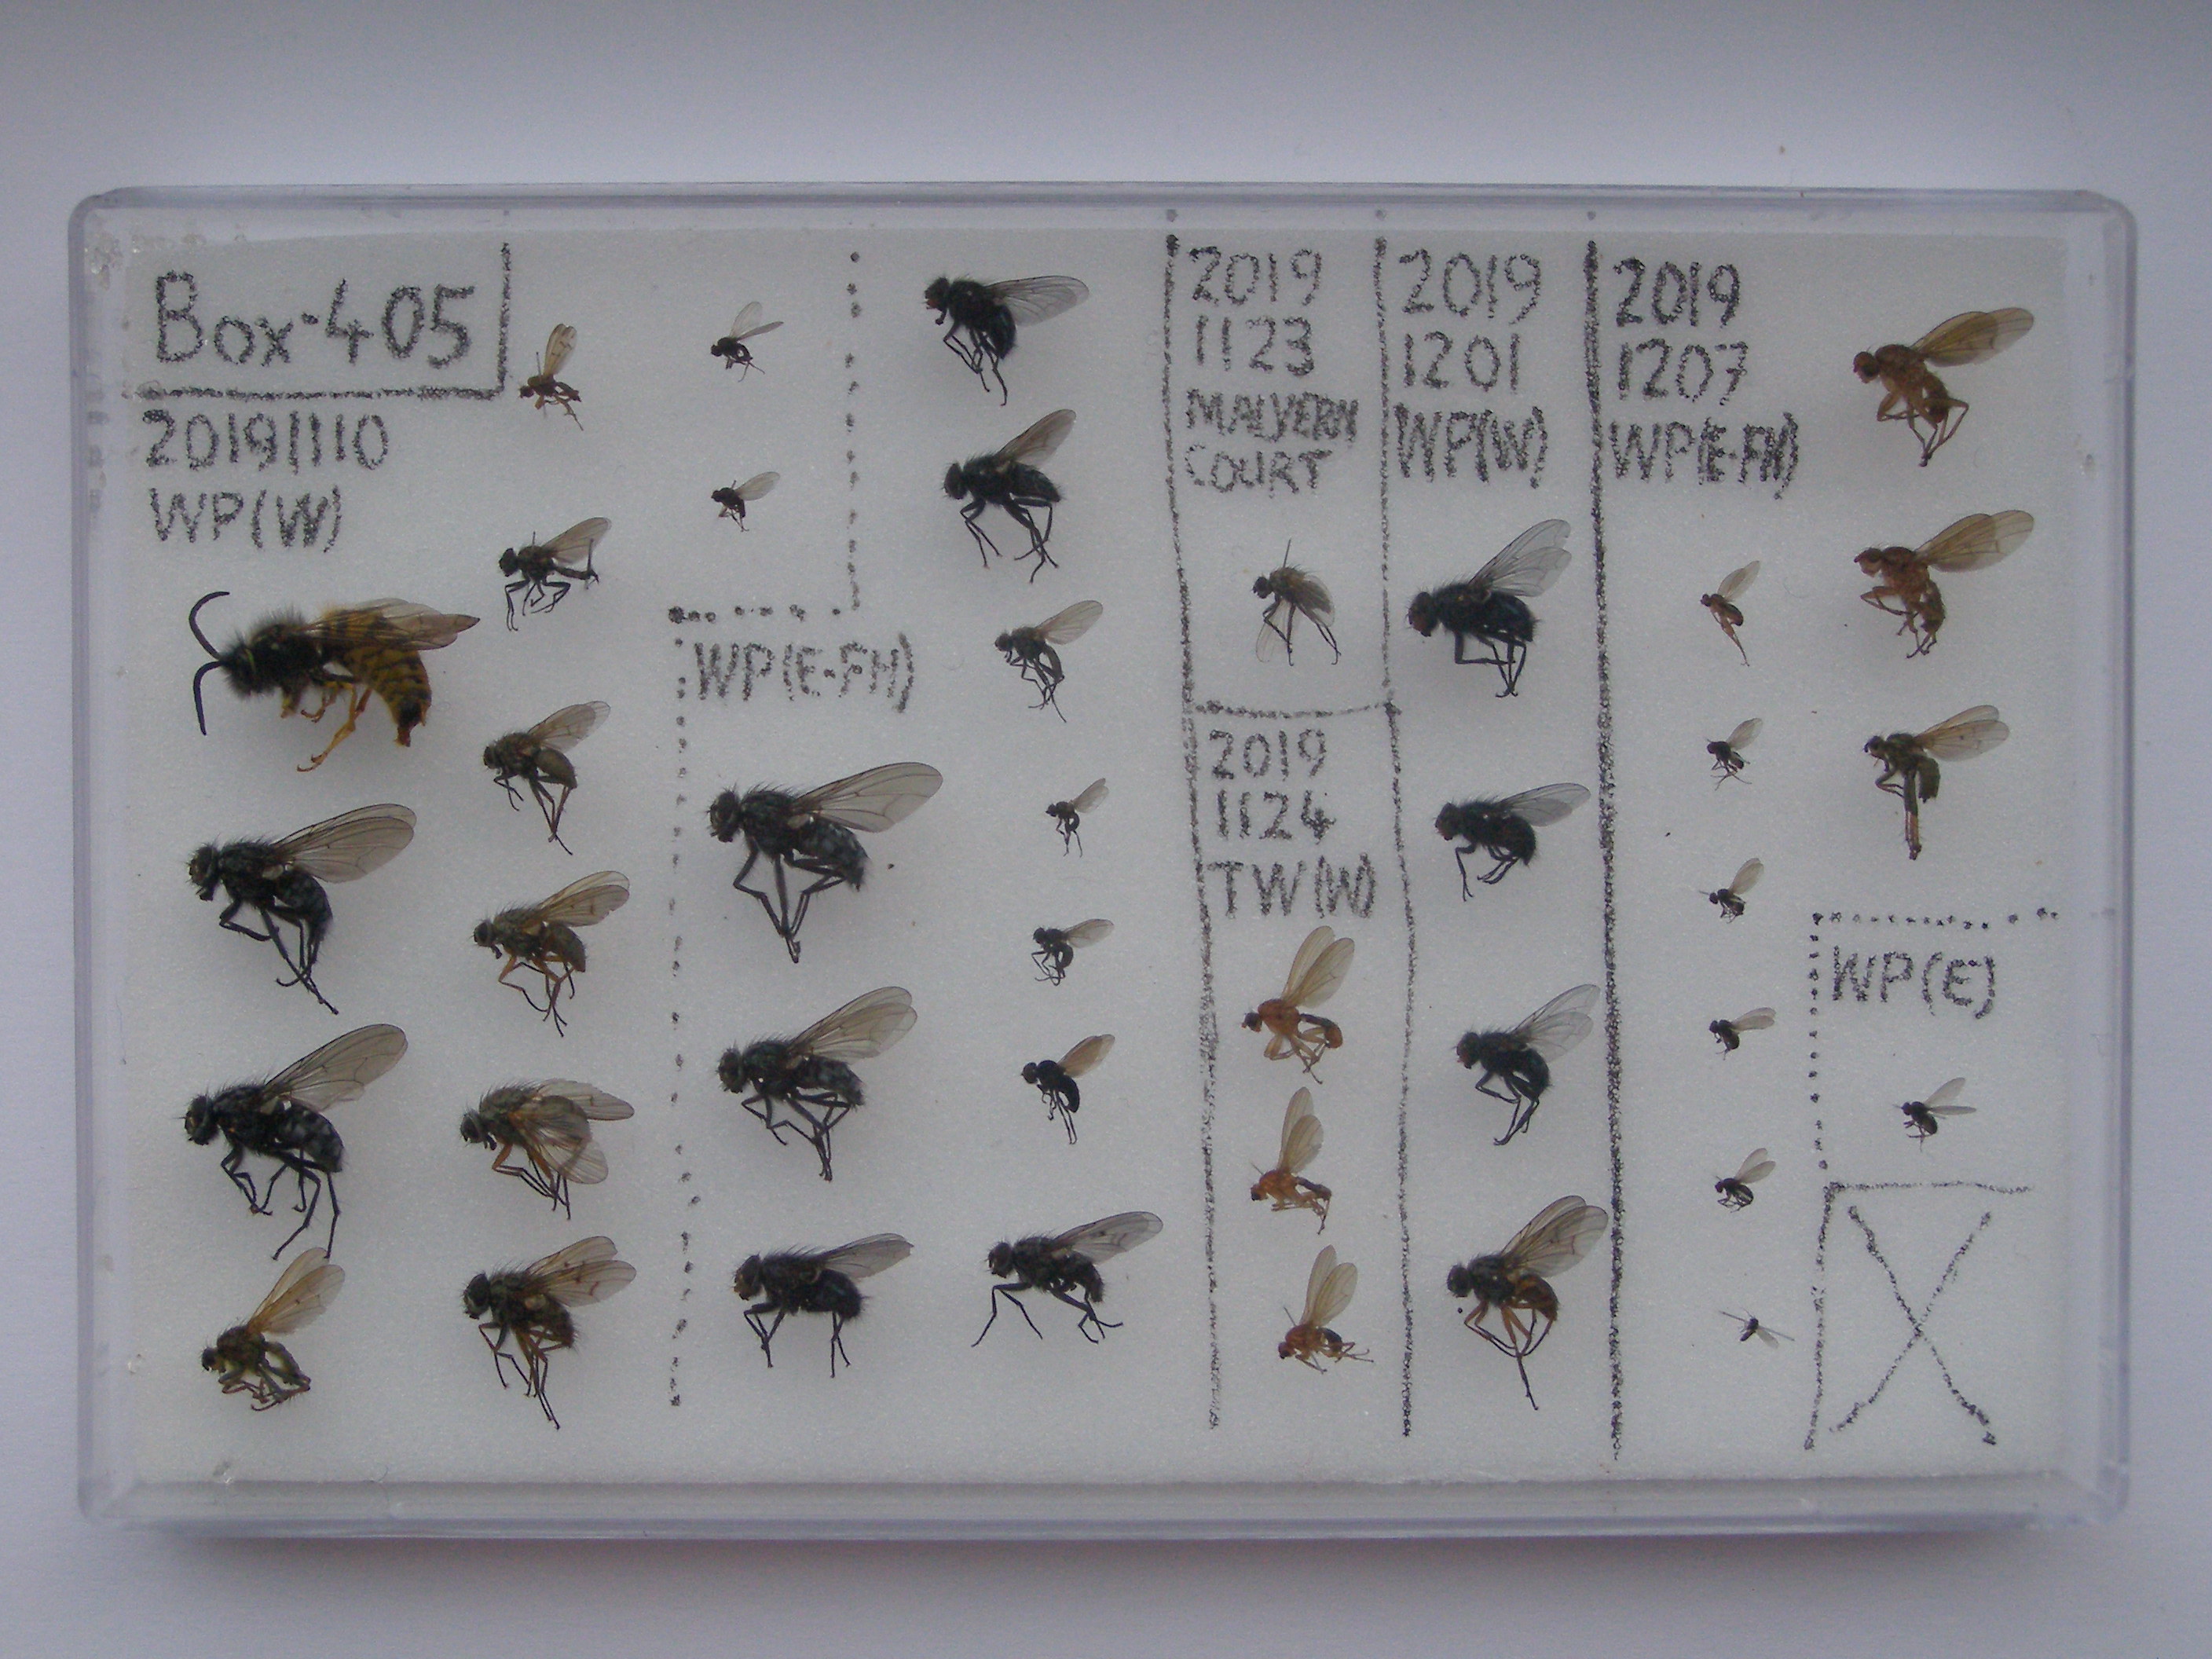 Box-405
20191110
WP(W)
WP(E-FH)
2019
1123
MALVERN
COURT
2019
1124
TW(W)
2019
1201
WP(W)
2019
1207
WP(E-FH)
WP(E)